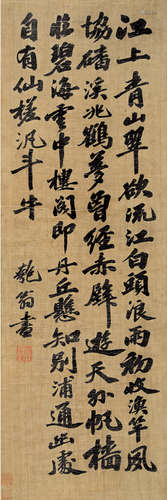 江上青山翠欲流江白頭浪雨初收漁竿風
協磻溪兆鶴夢曾經赤壁遊天外帆檣
臨碧海雲中樓閣即丹丘懸知別浦通此處
自有仙槎汎斗牛
匏翁書